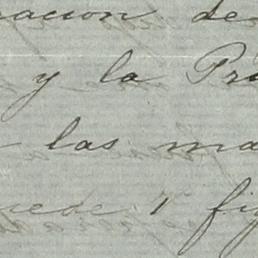 acion de
y la Pri
las ma
uede 1 fig